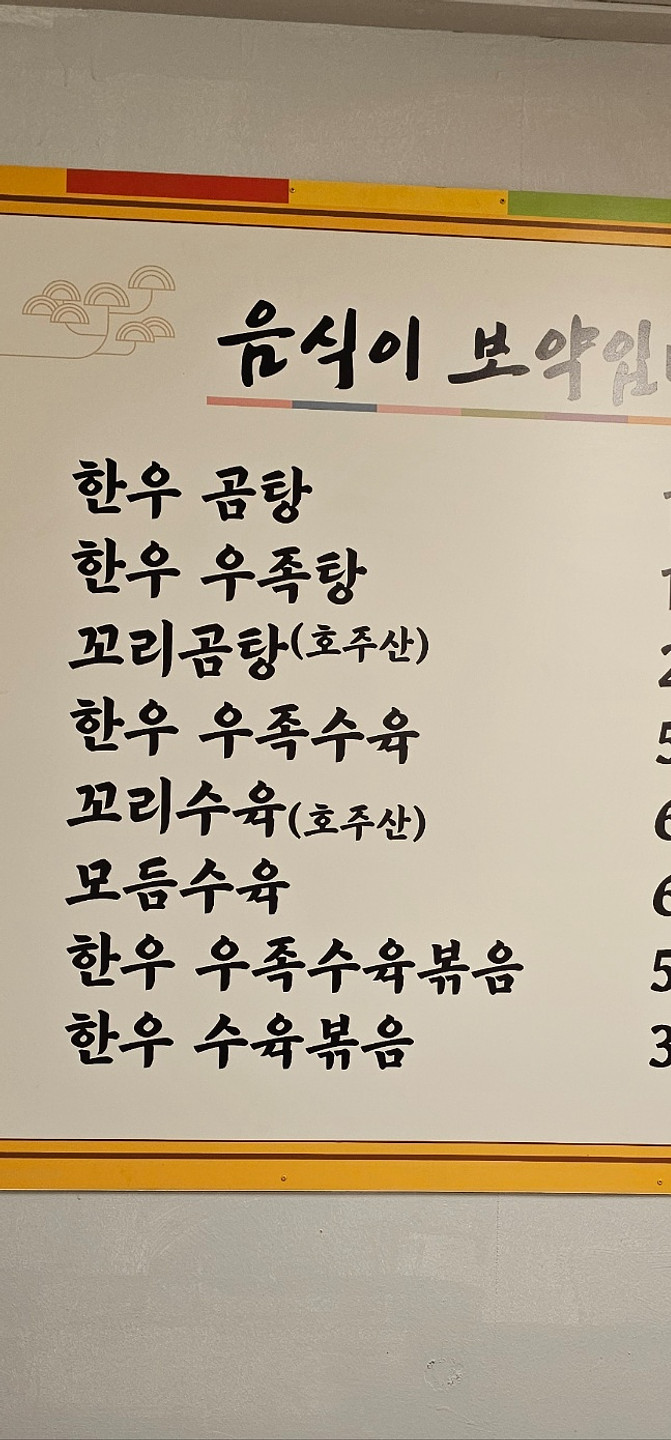 음식이 보약입
한우 곰탕
한우 우족탕
꼬리곰탕(호주산)
한우 우족수육
꼬리수육(호주산)
모듬수육
한우 우족수육볶음
한우 수육볶음